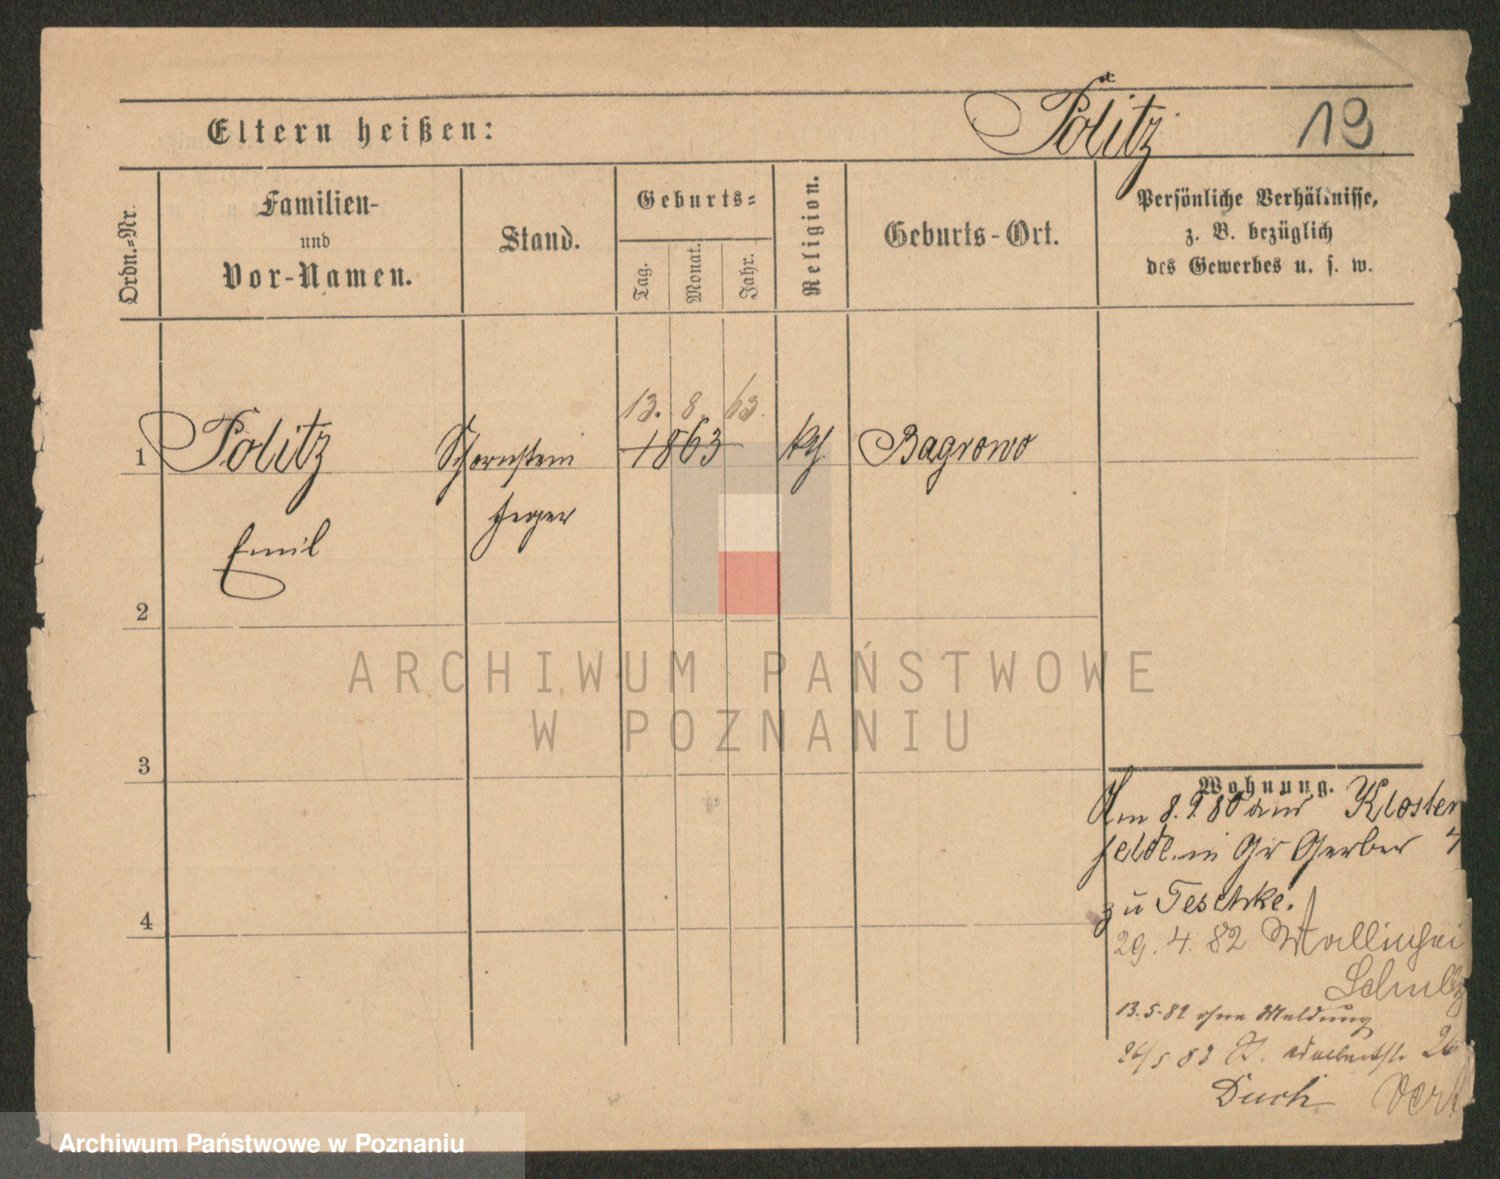 Eltern heißen:
Politz 19
Ordn.-Nr.
Familien-
und
Vor-Namen.
Stand.
Geburts-
Tag.
Monat.
Jahr.
Religion.
Geburts-Ort.
Persönliche Verhältnisse,
z. B. bezüglich
des Gewerbes u. s. w.
13. 8. 63.
1 Politz Schornstein 1863 Bagrowo
feger
Emil
2
ARCHIWUM PAŃSTWOWE
W POZNANIU
3
Wohnung.
Am 8.9.80 aus Kloster
felde in Gr Gerber 4
zu Teschke.
29. 4. 82
Schulz
13.5.82 ohne Meldung
26/5 83 26
Duch
4
Archiwum Państwowe w Poznaniu